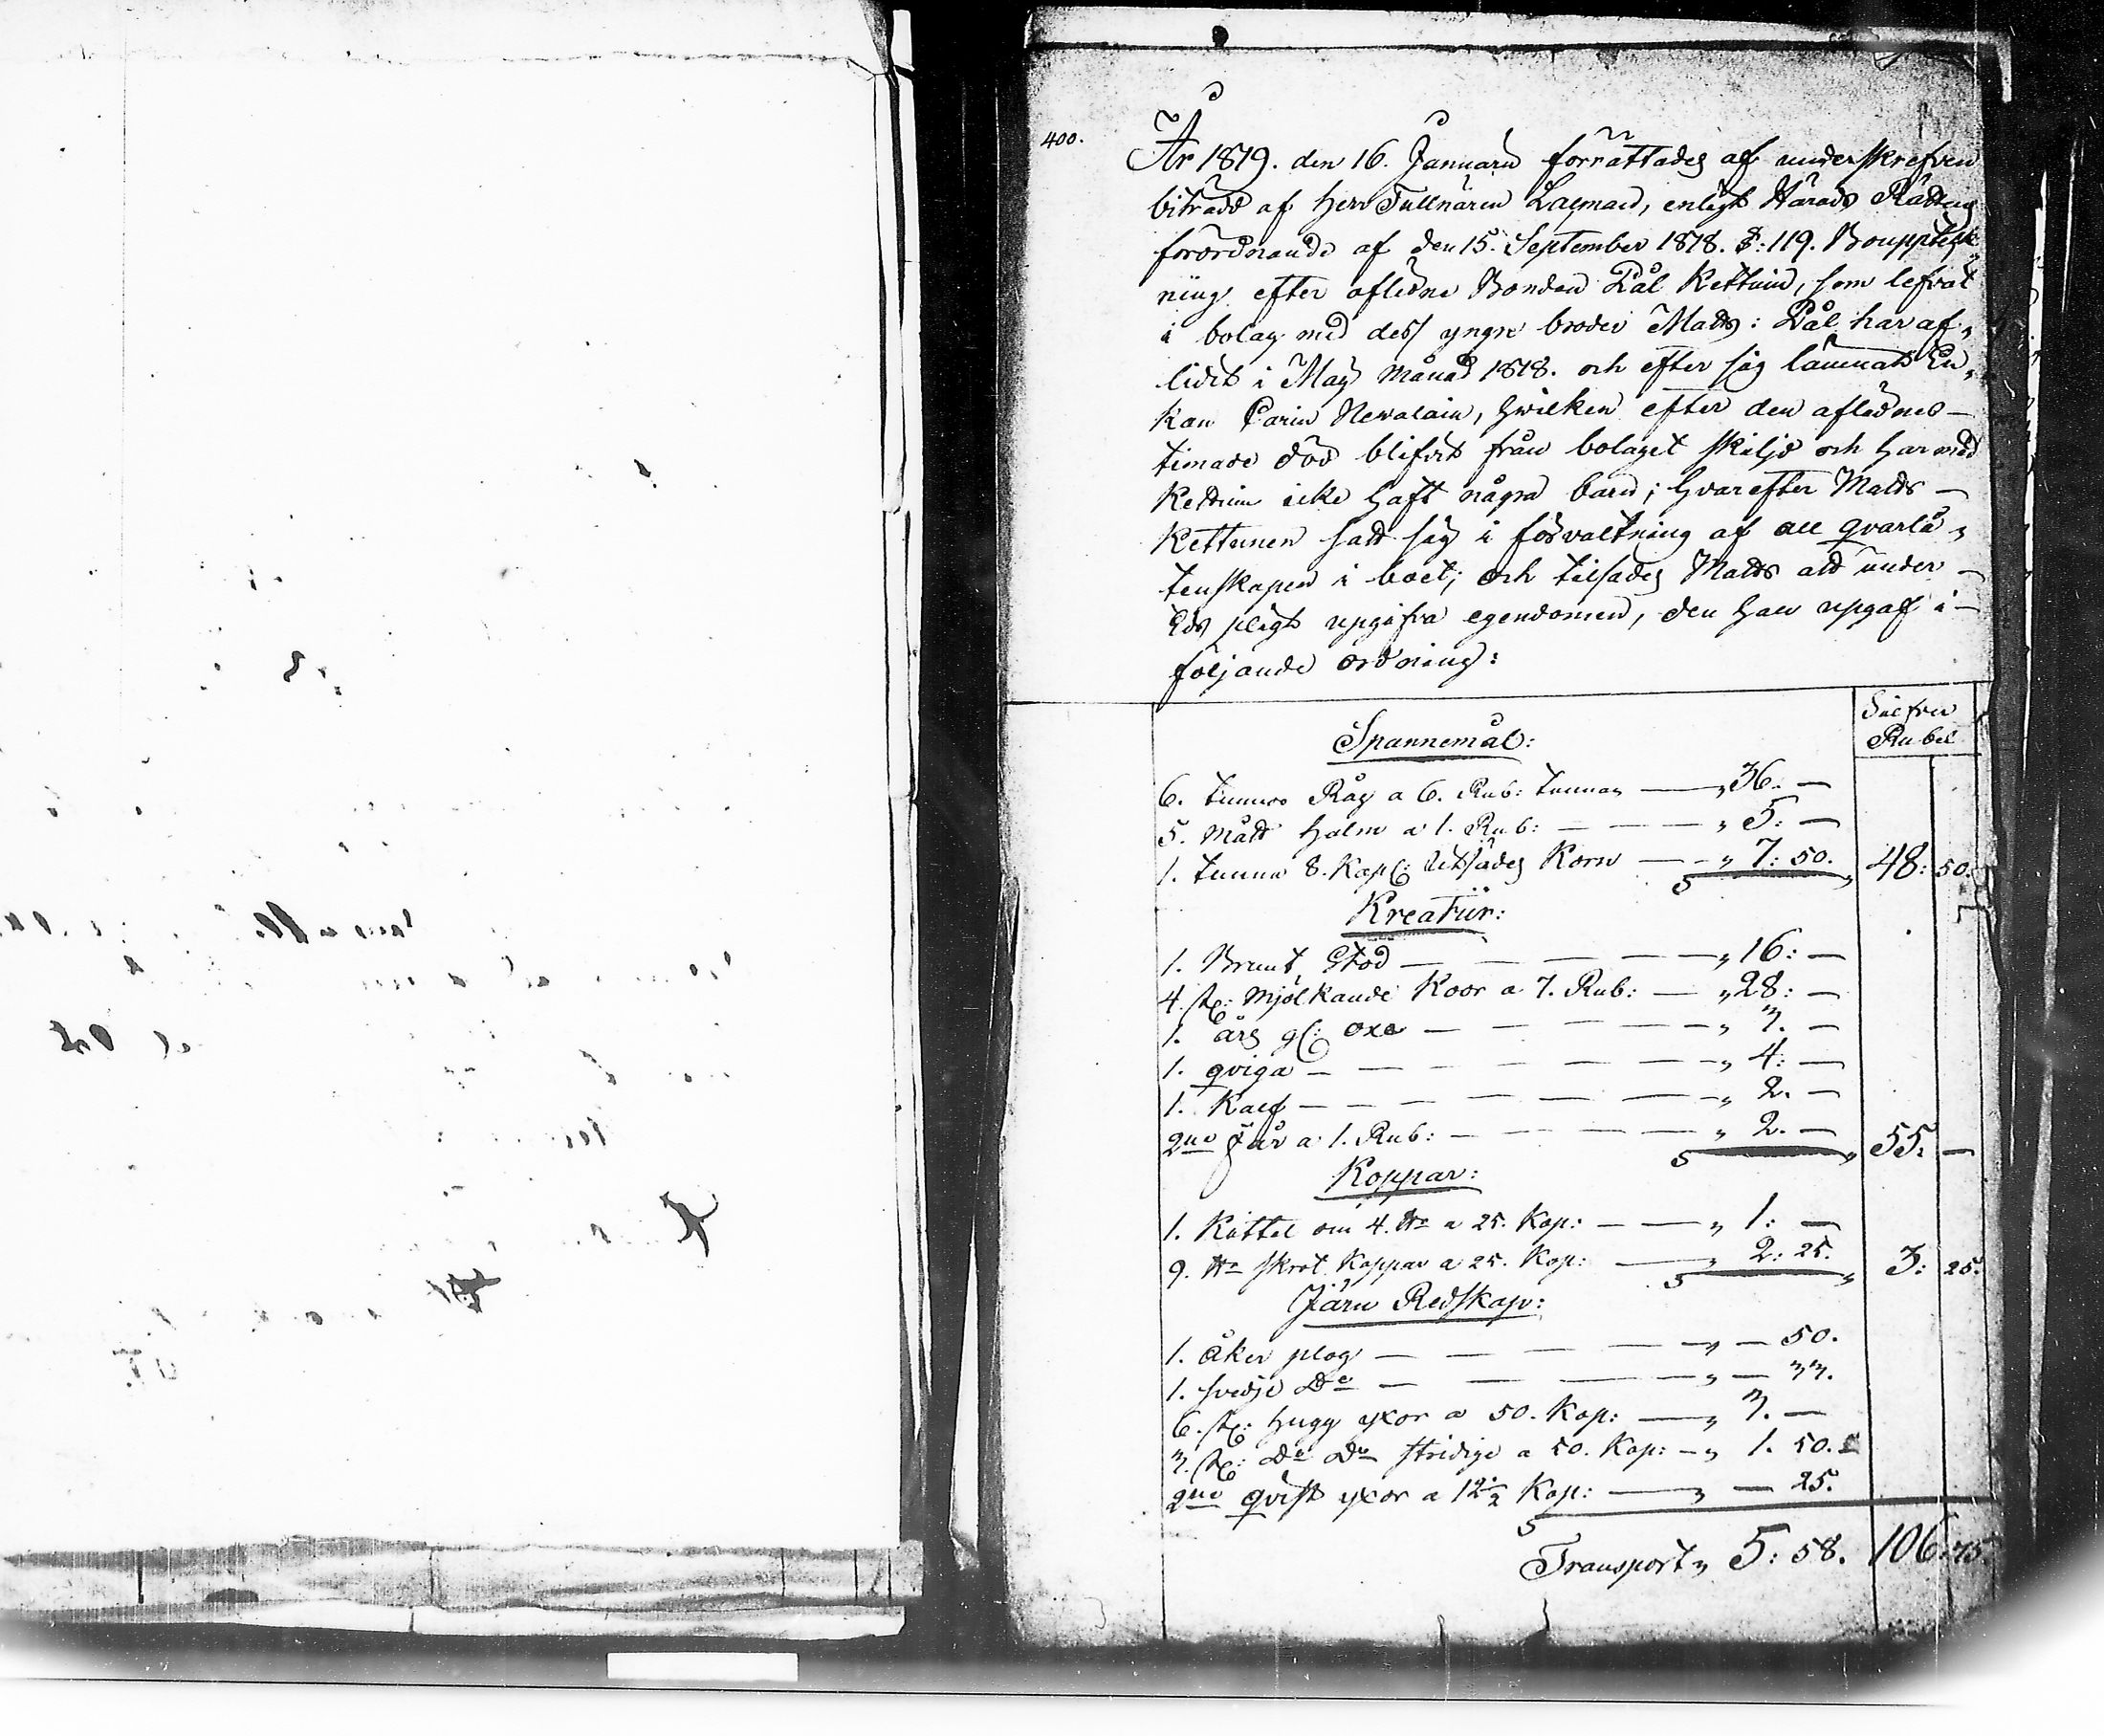 400.
År 1819. den 16. Januarii förrättades af underskrefven
biträdd af Herr Tullnären Lagman, enligt Härads Rättens
förordnande af den 15. September 1818. §: 119. Boupptek„
ning efter aflidne Bonden Pål Kettuin, som lefvat
i bolag med dess yngre broder Matts: Pål har af„
lidit i Maij månad 1818. och efter sig lämnat En„
kan Carin Nevalain, hvilken efter den aflednes
timade död blifvit från bolaget skiljd och har med
Kettuin icke haft några barn; hvarefter Matts
Kettunen satt sig i förvaltning af all qvarlå„
tenskapen i boet; och tilsades Matts att under
Eds pligt upgifva egendomen, den han upgaf i
följande ordning:
Silfver
Rubel
Spannemål:
6. tunnor Råg a 6. Rub: tunnan — „ 36. —
5. mått halm a 1. Rub: — — — „ 5: —
1. tunna 8. Kap: Utsädes Korn — — „ 7: 50. 48: 50.
Kreatur:
1. Brunt Stod — — — — „ 16: —
4. st: mjölkande Koor a 7. Rub: — „ 28: —
1. års gl: oxe — — — — „ 3. —
1. qviga — — — — — „ 4: —
1. Kalf — — — — — „ 2. —
2ne Får a 1. Rub: — — — — „ 2. — 55. —
Koppar:
1. Kättel om 4. ℔ a 25. Kop: — — „ 1: —
9. ℔ skrot Koppar a 25. Kop: — „ 2: 25. 3: 25.
Järn Redskap:
1. åker plog — — — — „ — 50.
1. svedje Do — — — — „ — 33.
6. st: hugg yxor a 50. Kop: — „ 3. —
3. st: Do Do stridige a 50. Kop: — „ 1. 50.
2ne qvist yxor a 12½ Kop: — „ — 25.
Transport „ 5: 58. 106: 75.